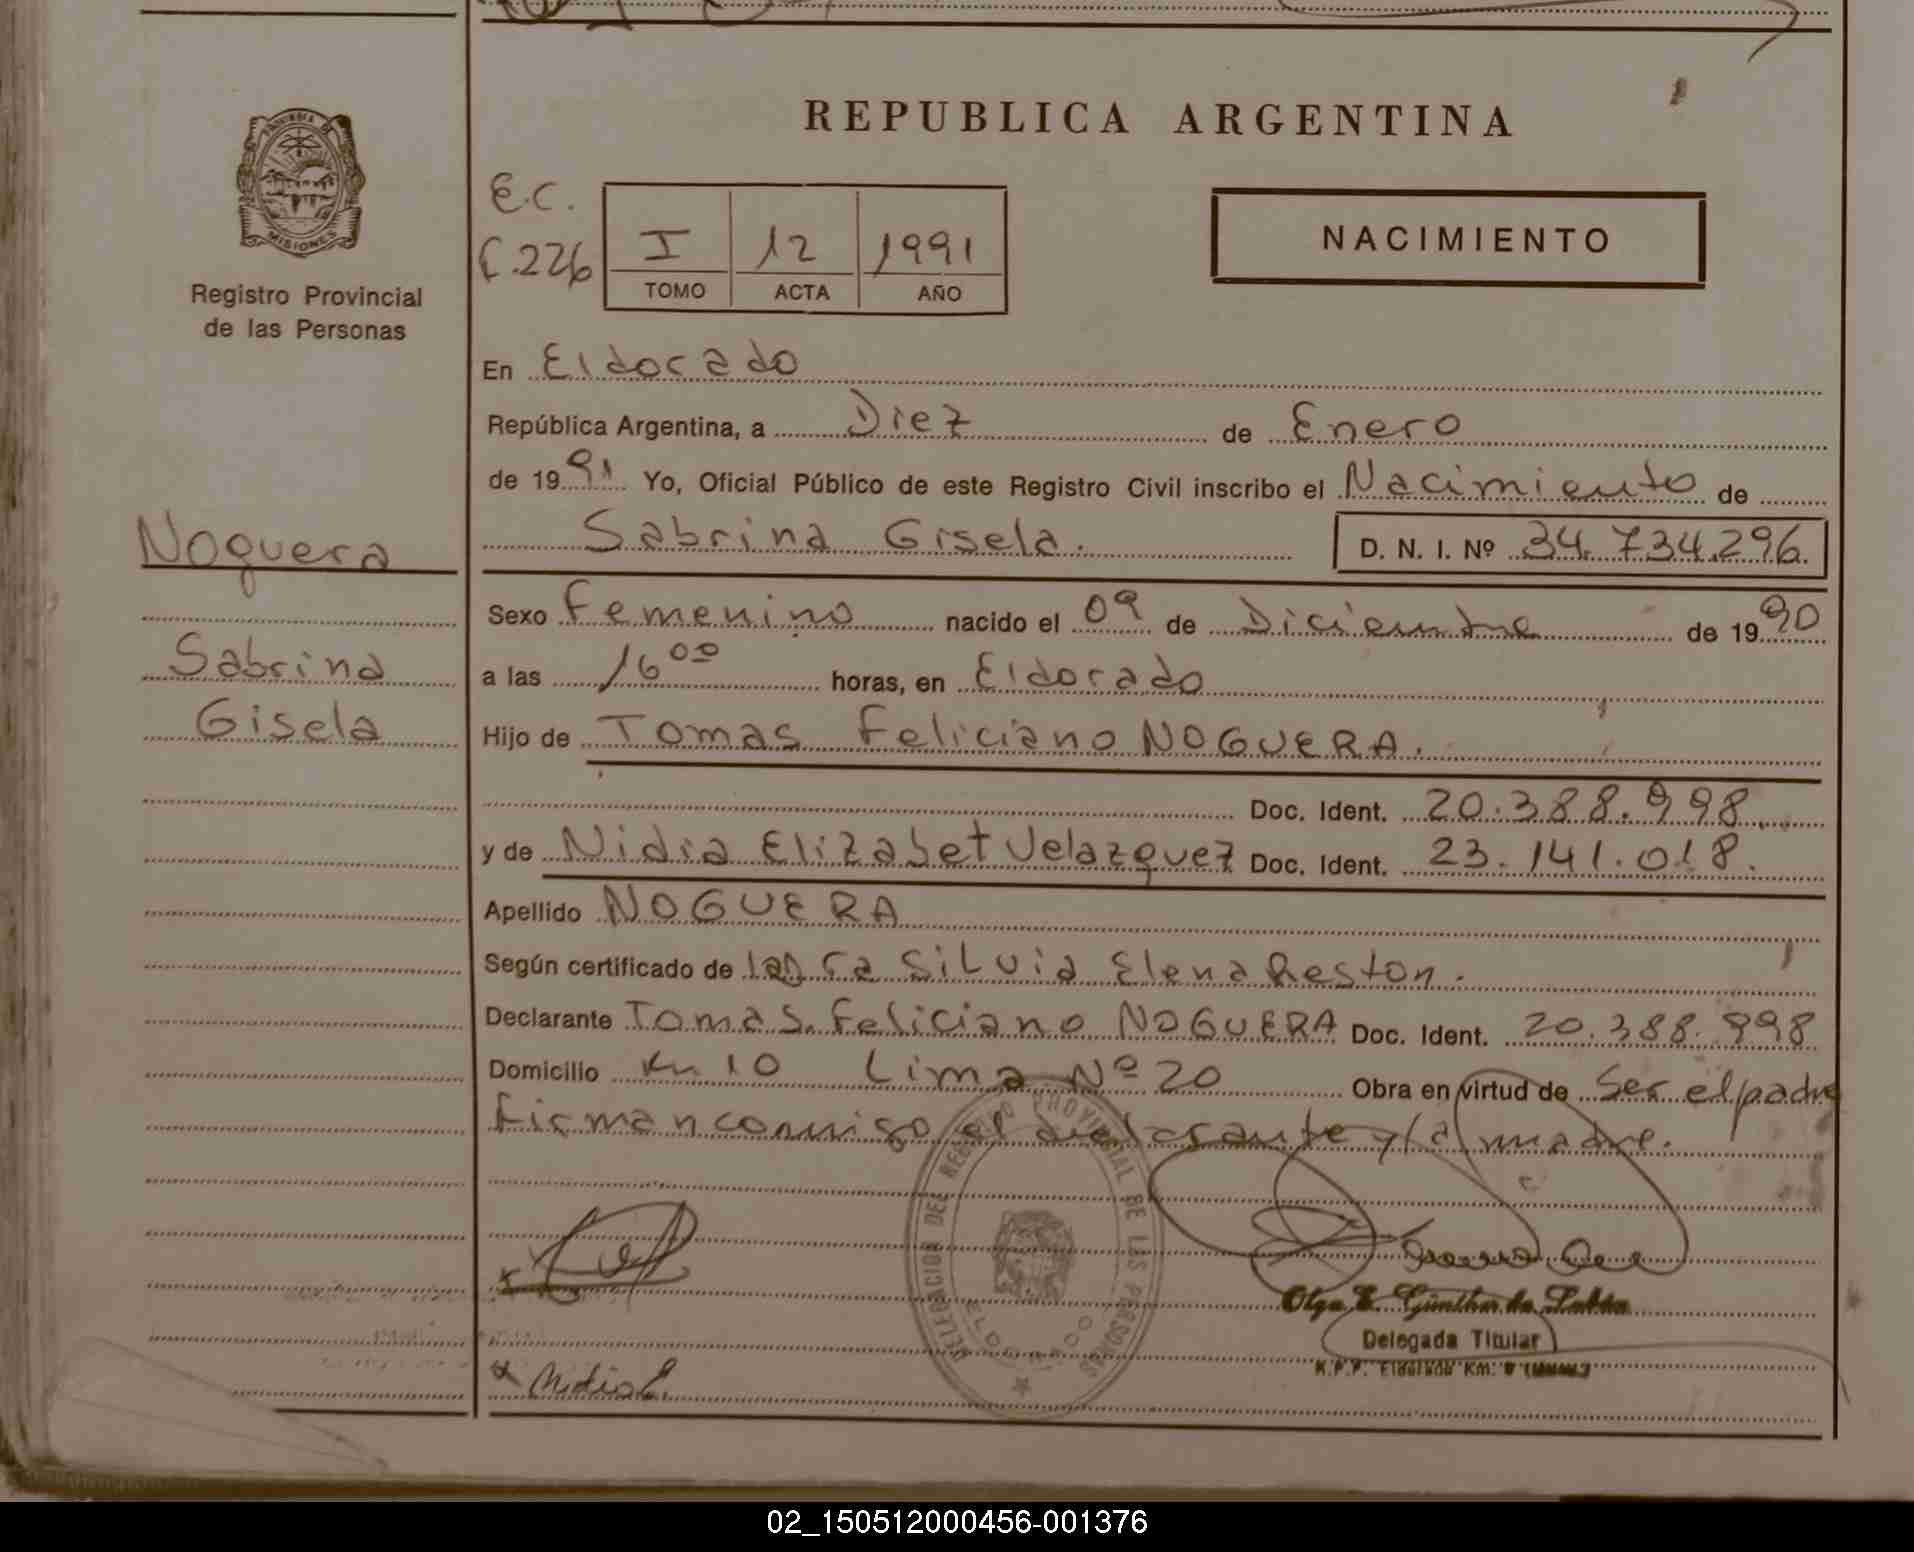 REPUBLICA ARGENTINA
PROVINCIA DE
MISIONES
Registro Provincial
de las Personas
E.C.
C.226
I 12 1991
TOMO ACTA AÑO
NACIMIENTO
En Eldorado
República Argentina, a Diez de Enero
de 1991 Yo, Oficial Público de este Registro Civil inscribo el Nacimiento de
Sabrina Gisela. D. N. I. Nº 34.734.296.
Noguera
Sabrina
Gisela
Sexo Femenino nacido el 09 de Diciembre de 1990
a las 16 00 horas, en Eldorado
Hijo de Tomas Feliciano NOGUERA.
Doc. Ident. 20.388.998
y de Nidia Elizabet Velazquez Doc. Ident. 23.141.018.
Apellido NOGUERA
Según certificado de Silvia Elena Reston.
Declarante Tomas Feliciano NOGUERA Doc. Ident. 20.388.998
Domicilio Km 10 Lima Nº 20 Obra en virtud de Ser el padre
Firman conmigo el declarante y la madre.
DELEGACION DEL REGISTRO PROVINCIAL DE LAS PERSONAS
ELDORADO
Olga E. Günther de
Delegada Titular
R.P.P. Eldorado Km.
Nidia E.
02_150512000456-001376